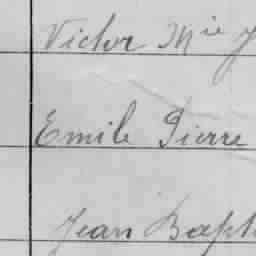 Victor Mie J
Emile Pierre
Jean Bapt